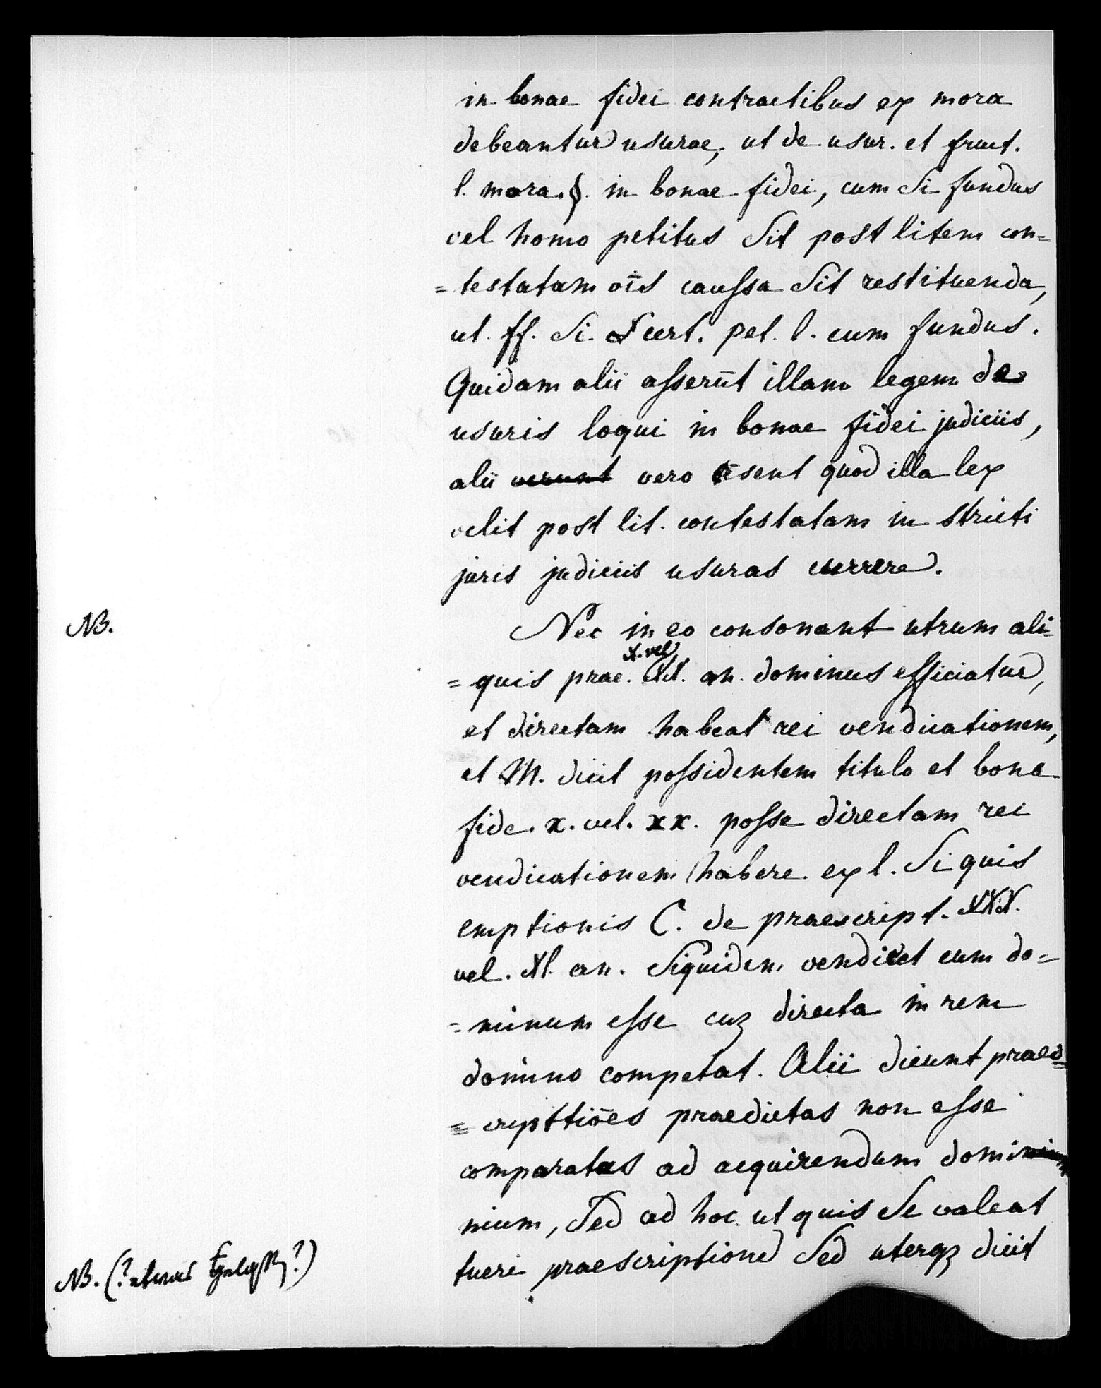 in bonae fidei contractibus ex mora
debeantur usurae, ut de usur. et fruct.
l. mora. §. in bonae fidei, cum si fundus
vel homo petitus sit post litem con=
=testatam oīs caussa sit restituenda,
ut ff. si cert. pet. l. cum fundus.
Quidam alii asserūt illam legem de
usuris loqui in bonae fidei judiciis,
alii vero seut quod illa lex
velit post lit. contestatam in stricti
juris judiciis usuras currere.
NB.
Nec in eo consonant utrum ali=
x. vel
=quis prae. XX. an. dominus efficiatur,
et directam habeat rei vendicationem,
et M. dicit possidentem titulo et bona
fide. x. vel. xx. posse directam rei
vendicationem habere ex l. Si quis
emptionis C. de praescript. XXX.
vel. Xl. an. Siquidem vendicet eum do=
=minum esse cuȝ directa in rem
domino competat. Alii dicunt praes=
=cripttiōes praedictas non esse
comparatas ad acquirendum domi
nium, sed ad hoc ut quis se valeat
tueri praescriptione sed uterqȝ dicit
NB. (?